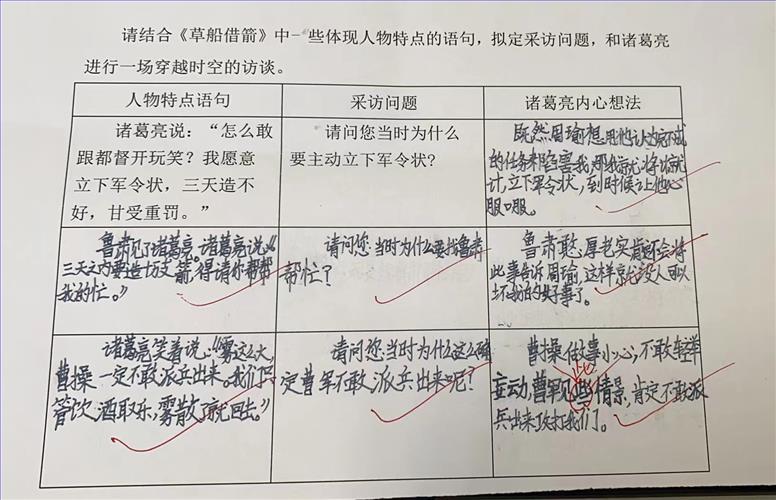 请结合《草船借箭》中一些体现人物特点的语句，拟定采访问题，和诸葛亮
进行一场穿越时空的访谈。
人物特点语句
采访问题
诸葛亮内心想法
诸葛亮说：“怎么敢
跟都督开玩笑？我愿意
立下军令状，三天造不
好，甘受重罚。”
请问您当时为什么
要主动立下军令状？
既然周瑜想用他认为完不成
的任务来陷害我，那我就将计就
计，立下军令状，到时候让他心
服口服。
鲁肃见了诸葛亮。诸葛亮说“
三天之内要造十万支箭，得请你帮帮
我的忙。”
请问您当时为什么要找鲁肃
帮忙？
鲁肃憨厚老实肯定不会将
此事告诉周瑜，这样就没人可以
坏我的好事了。
诸葛亮笑着说：“雾这么大，
曹操一定不敢派兵出来。我们只
管饮酒取乐，雾散了就回去。”
请问您当时为什么这么确
定曹军不敢派兵出来呢？
曹操做事小心，不敢轻举
妄动，曹军见此情景，肯定不敢派
兵出来攻打我们。